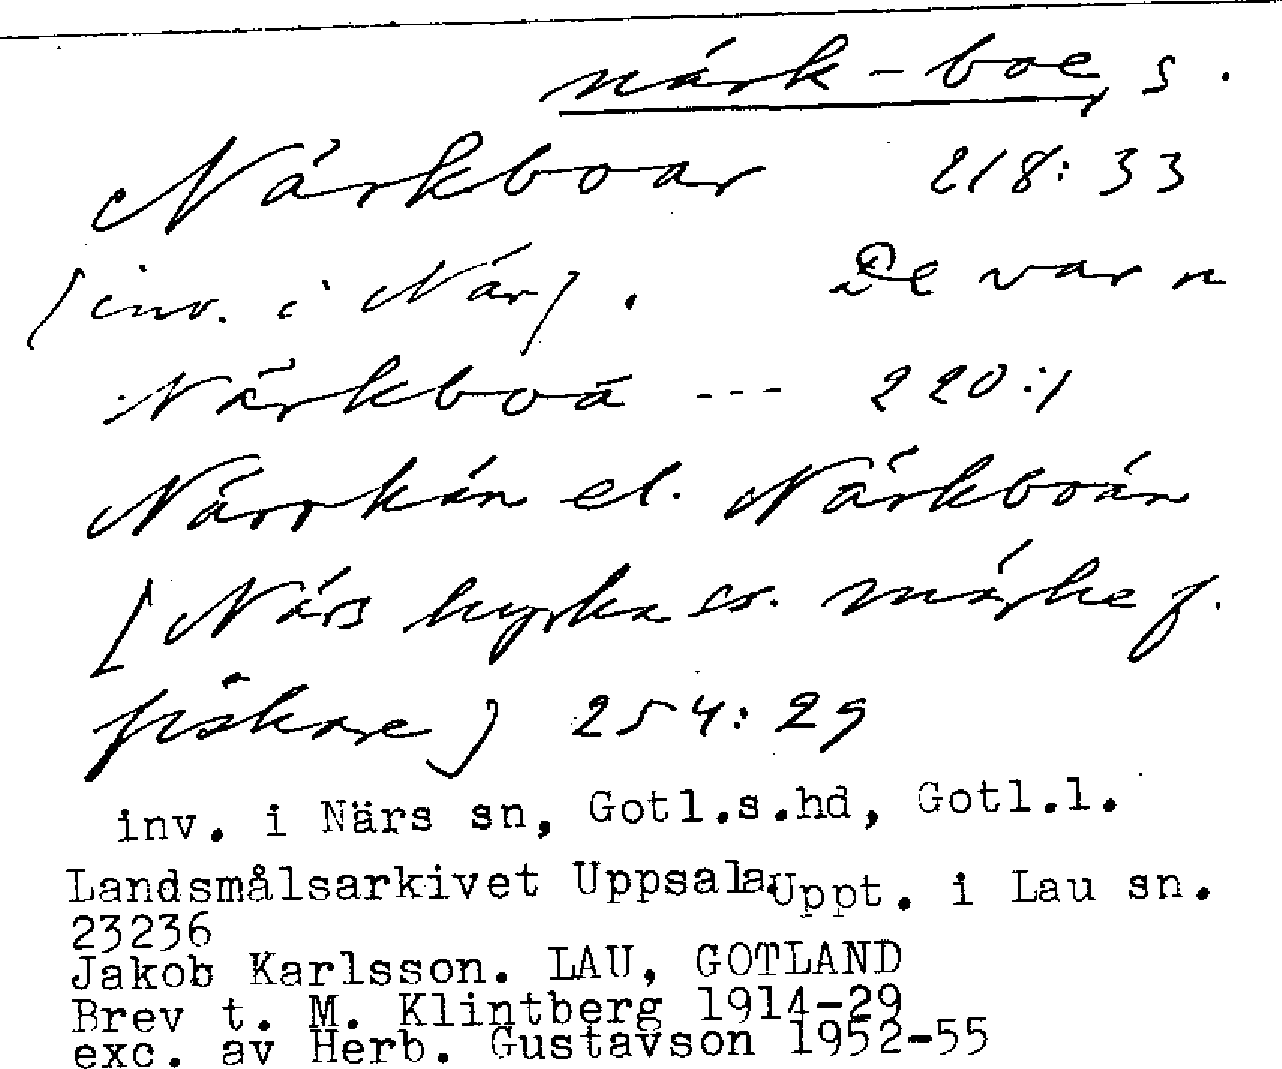 närk-boe, s.
Närkboar 218:33
[inv. i När]. De var n
Närkboä --- 220:1
Närrkän el. Närkboän
[Närs kyrka ss. märke f.
fiskare] 254:29
inv. i Närs sn, Gotl.s.hd, Gotl.l.
Landsmålsarkivet Uppsala Uppt. i Lau sn.
23236
Jakob Karlsson. LAU, GOTLAND
Brev t. M. Klintberg 1914-29
exc. av Herb. Gustavson 1952-55